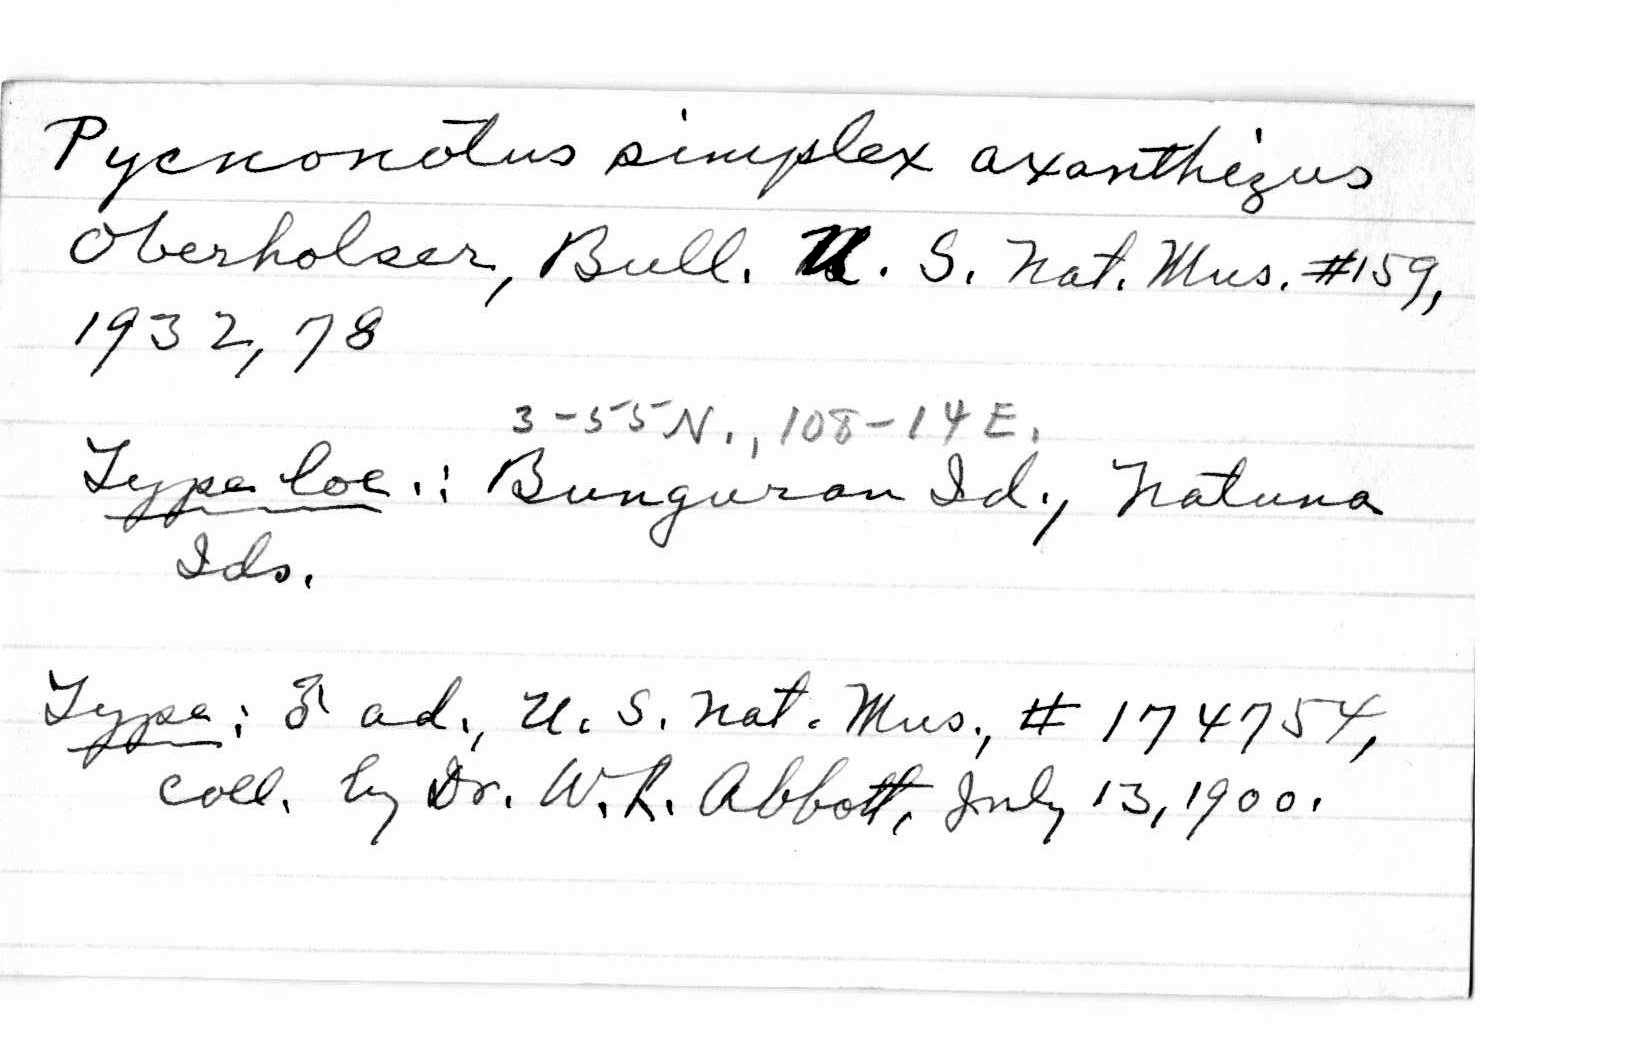 Pycnonotus simplex axanthizus
Oberholser, Bull. U. S. Nat. Mus. #159,
1932, 78
3-55 N., 108-14 E.
Type loc.: Bunguran Id., Natuna
Ids.
Type: ♂ ad., U. S. Nat. Mus., # 174754,
coll. by Dr. W. L. Abbott, July 13, 1900.